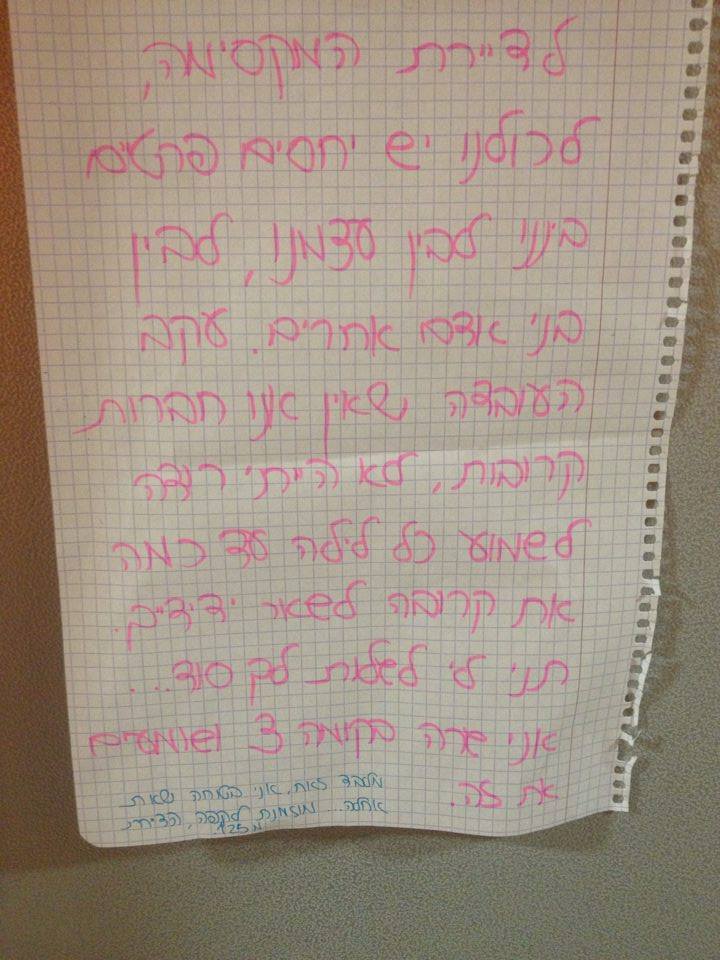 לדיירת המקסימה,
לכולנו יש יחסים פרטים
בינינו לבין עצמנו, לבין
בני אדם אחרים. עקב
העובדה שאין אנו חברות
קרובות, לא הייתי רוצה
לשמוע כל לילה עד כמה
את קרובה לשאר ידידייך.
תני לי לגלות לך סוד...
אני גרה בקומה 3 ושומעים
את זה.
מלבד זאת, אני בטוחה שאת
אחלה... מוזמנת לקפה,